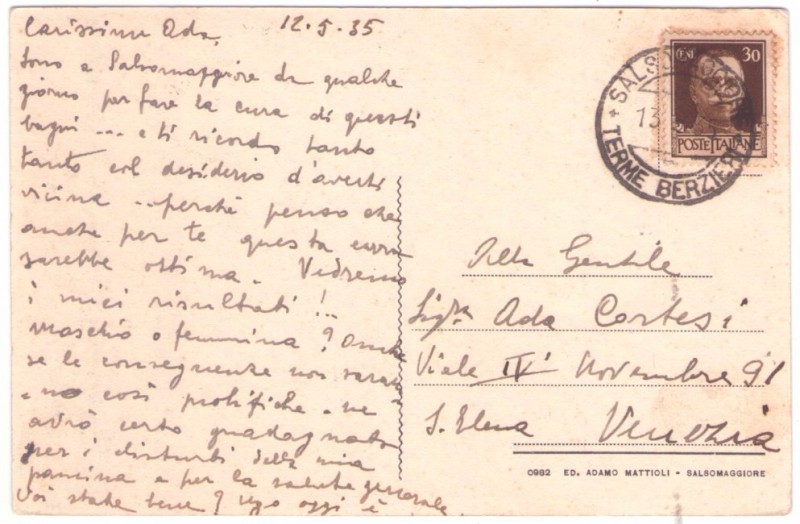 12.5.35
Carissima Ada,
Sono a Salsomaggiore da qualche
giorno per fare la cura di questi
bagni ... e ti ricordo tanto
tanto col desiderio d'averti
vicina ... perchè penso che
anche per te questa cura
sarebbe ottima. Vedremo
i miei risultati!...
Maschio o femmina? Anche
se le conseguenze non saran-
-no così prolifiche - ne
avrò certo guadagnato
per i disturbi della mia
pancina e per la salute generale
Voi state bene? oggi è
CENT 30
POSTE ITALIANE
SALSOMAGGIORE
13
TERME BERZIERI
Alla Gentile
Sigra Ada Cortesi
Viale IV Novembre 91
S. Elena Venezia
0992 ED. ADAMO MATTIOLI - SALSOMAGGIORE